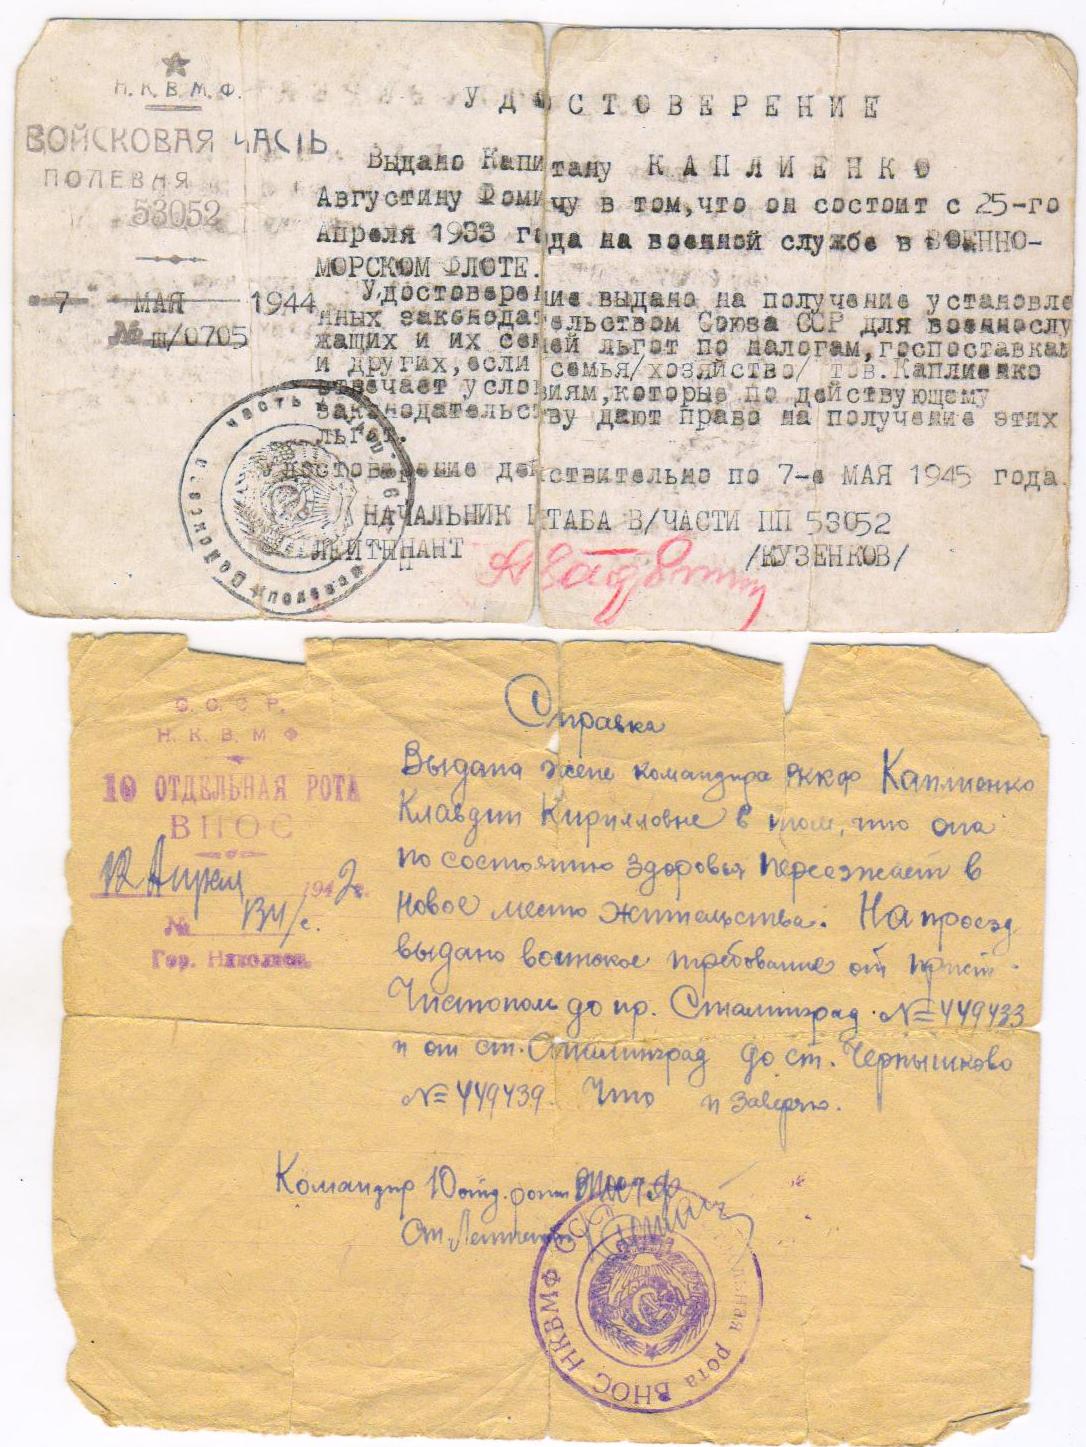 Н.К.В.М.Ф.
ВОЙСКОВАЯ ЧАСТЬ
ПОЛЕВАЯ
53052
7 МАЯ 1944
№ ш/0705
УДОСТОВЕРЕНИЕ
Выдано Капитану КАПЛИЕНКО
Августину Фомичу в том,что он состоит с 25-го
Апреля 1933 года на военной службе в ВОЕННО-
МОРСКОМ ФЛОТЕ.
Удостоверение выдано на получение установле
нных законодательством Союза ССР для военнослу
жащих и их семей льгот по налогам,госпоставкам
и других,если семья/хозяйство/ тов.Каплиенко
отвечает условиям,которые по действующему
законодательству дают право на получение этих
льгот.
Удостоверение действительно по 7-е МАЯ 1945 года.
НАЧАЛЬНИК ШТАБА В/ЧАСТИ ПП 53052
ЛЕЙТЕНАНТ /КУЗЕНКОВ/
Войсковая часть
С.С.С.Р.
Н.К.В.М.Ф
10 ОТДЕЛЬНАЯ РОТА
ВНОС
12 Апреля 1942г.
№ 134/с.
Гор. Николаев.
Справка
Выдана жене командира РККФ Каплиенко
Клавдии Кирилловне в том, что она
по состоянию здоровья переезжает в
новое место жительства. На проезд
выдано воинское требование от прист.
Чистополь до пр. Сталинград №449433
и от ст. Сталинград до ст. Чернышково
№449439. Что и заверяю.
Командир 10 отд. роты ВНОС
Ст. Лейтенант
рота ВНОС НКВМФ СССР